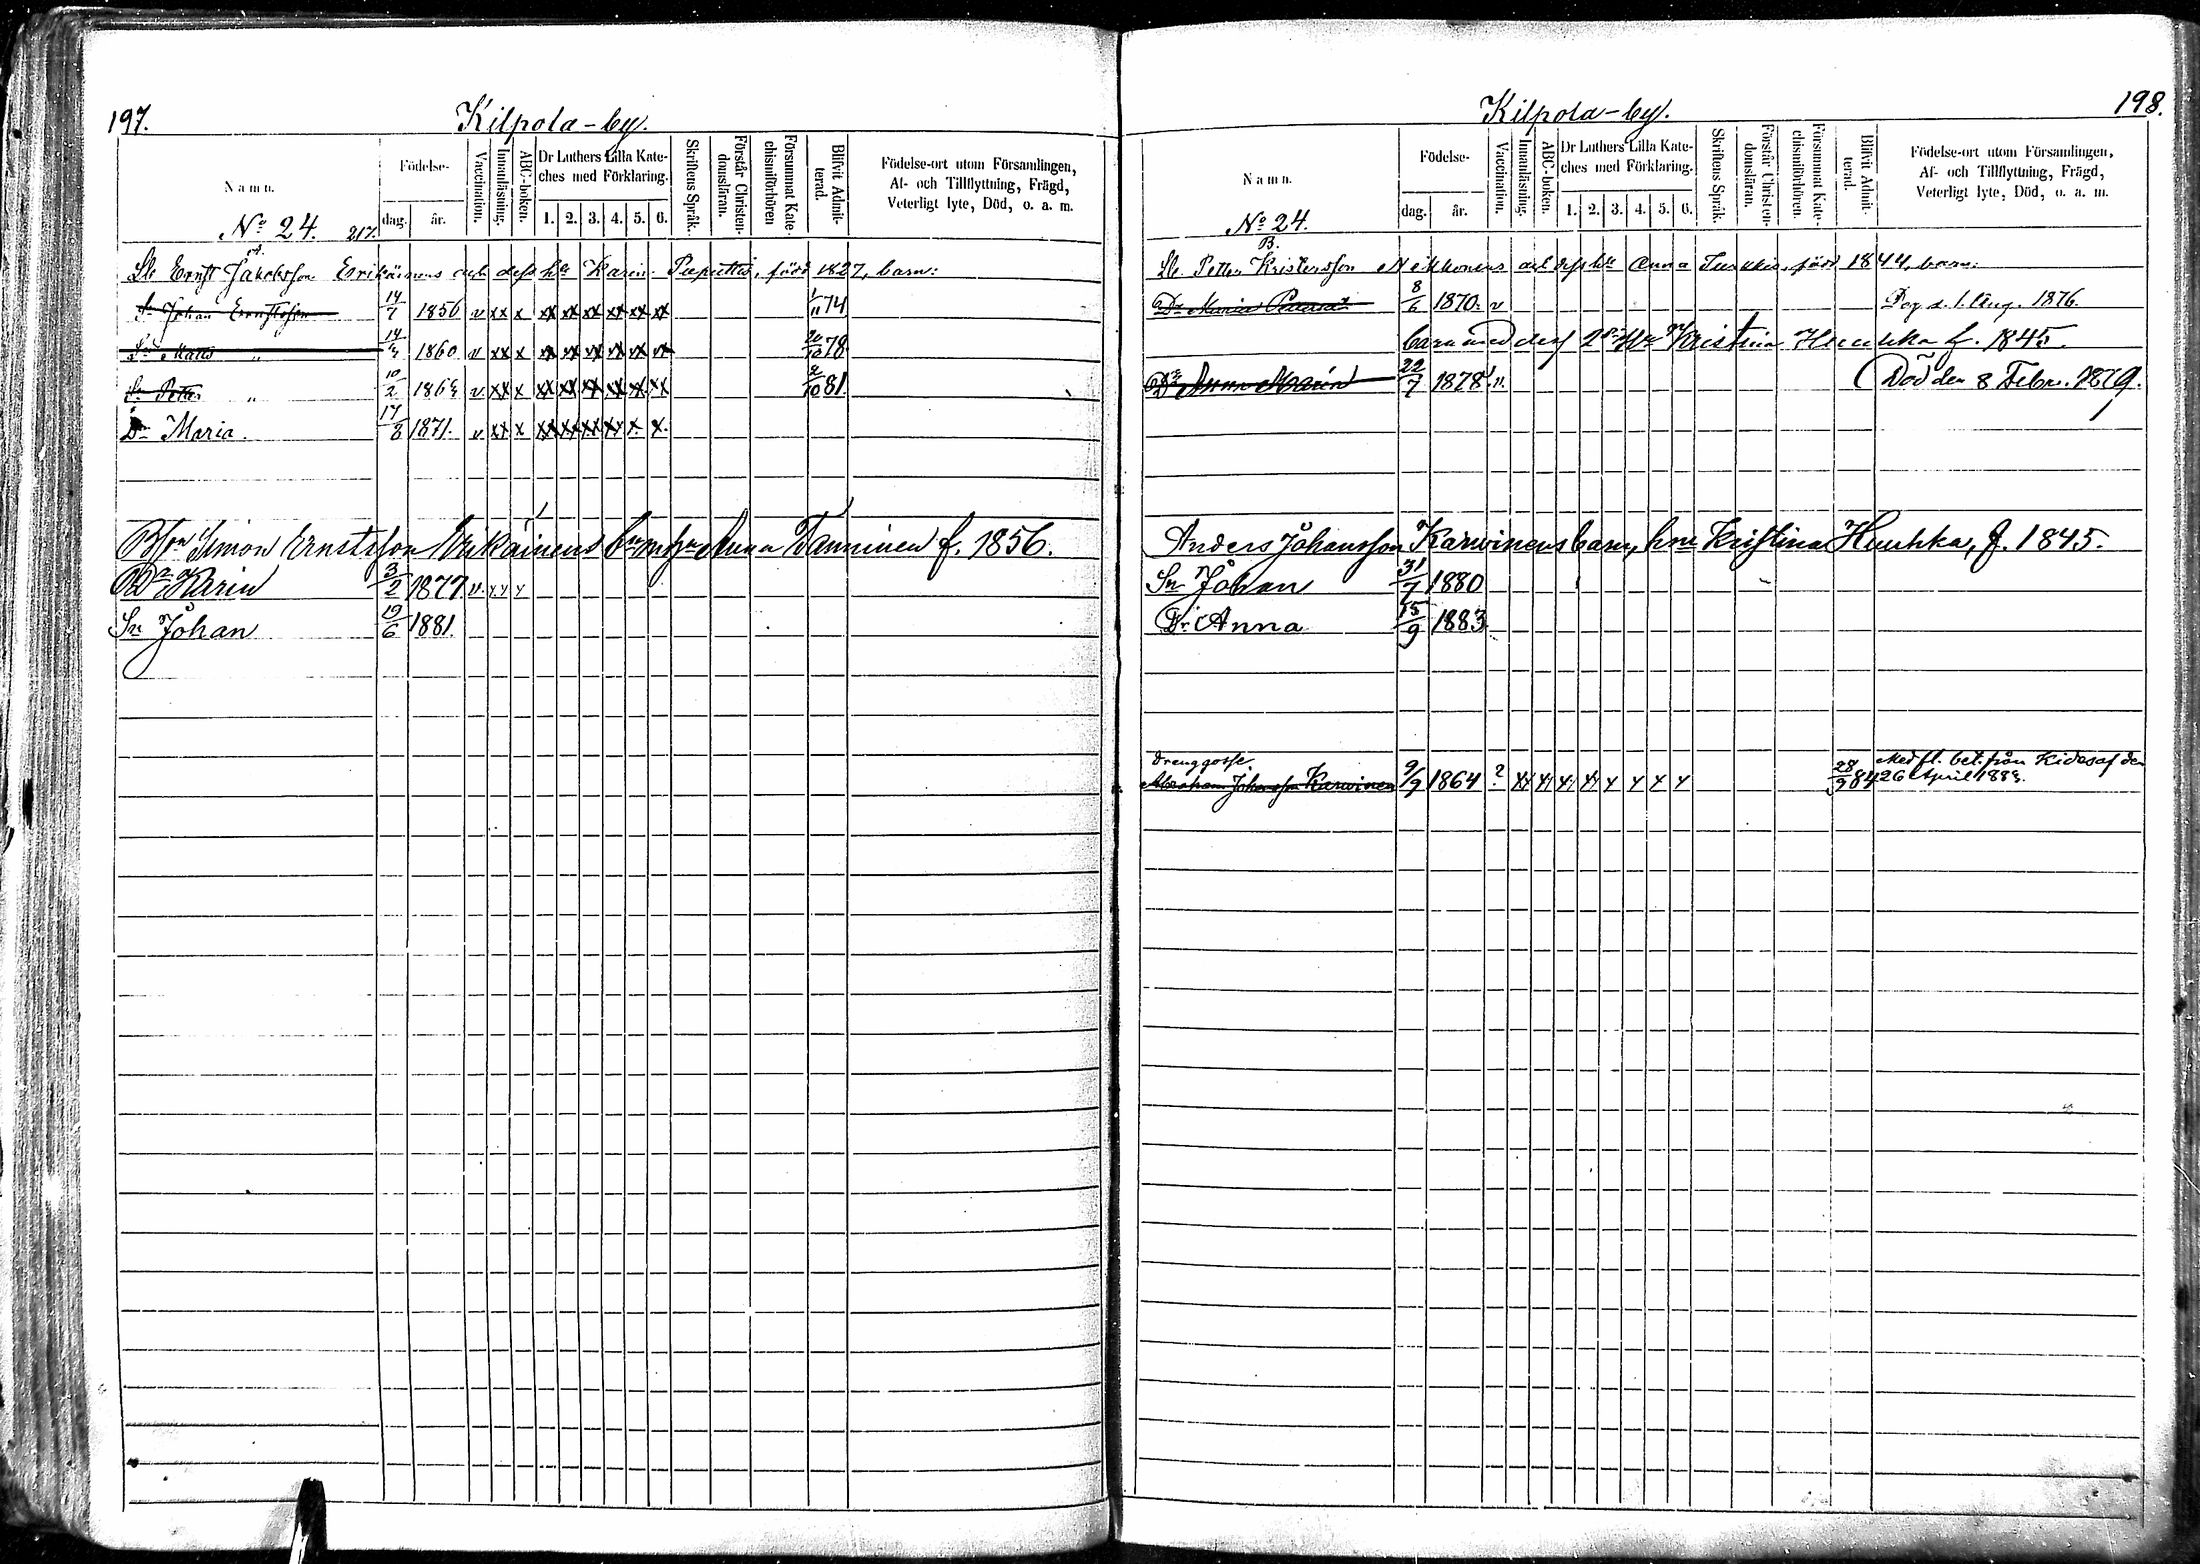 197.
Kilpola-by.
Namn.
Födelse-
dag.
år.
Vaccination.
Innanläsning.
ABC-boken.
Dr Luthers Lilla Kate-
ches med Förklaring.
1. 2. 3. 4. 5. 6.
Skriftens Språk.
Förstår Christen-
domsläran.
Försummat Kate-
chismiförhören
Blifvit Admit-
terad.
Födelse-ort utom Församlingen,
Af- och Tillflyttning, Frägd,
Veterligt lyte, Död, o. a. m.
No 24. 217.
A.
Lb Ernst Jakobsson Erikäinens och dess hu Karin Puputti, född 1827, barn:
Sn Johan Ernstsson 14/7 1856 v xx x xx xx xx xx xx xx 1/11 74
Sn Matts " 1860 v xx x xx xx xx xx xx xx 20/10 78
Sn Petter " 10/2 186 v xx x xx xx xx xx xx xx 2/10 81.
Dr Maria. 17/8 1871. v xx x xx xx xx xx x x
Simon Ernstsson Erikäinens Anna Tanninen f. 1856.
Dr Karin 3/2 1877 v x x x
Sn Johan 19/6 1881.
198.
Kilpola-by.
Namn.
Födelse-
dag.
år.
Vaccination.
Innanläsning.
ABC-boken.
Dr Luthers Lilla Kate-
ches med Förklaring.
1. 2. 3. 4. 5. 6.
Skriftens Språk.
Förstår Christen-
domsläran.
Försummat Kate-
chismiförhören.
Blifvit Admit-
terad.
Födelse-ort utom Församlingen,
Af- och Tillflyttning, Frägd,
Veterligt lyte, Död, o. a. m.
No 24.
B.
Lb. Petter Kristersson Mikkonens och dess hu Anna Turkkis, född 1844, barn:
Dr Maria 8/6 1870. v Dog d. 1. Aug. 1876.
barn med dess 2dra Hu Kristina Huuhka f. 1845
Dr Anna Maria 22/7 1878 v. Död den 8 Febr. 1879.
Anders Johansson Karvinens barn, hru Kristina Huuhka, f. 1845.
Sn Johan 31/7 1880
Dr Anna 15/9 1883
Drenggosse
Abraham Johansson Karvinen 9/9 1864 ? 28/9 84 Med fl. bet. från Kides af den
26 April 188